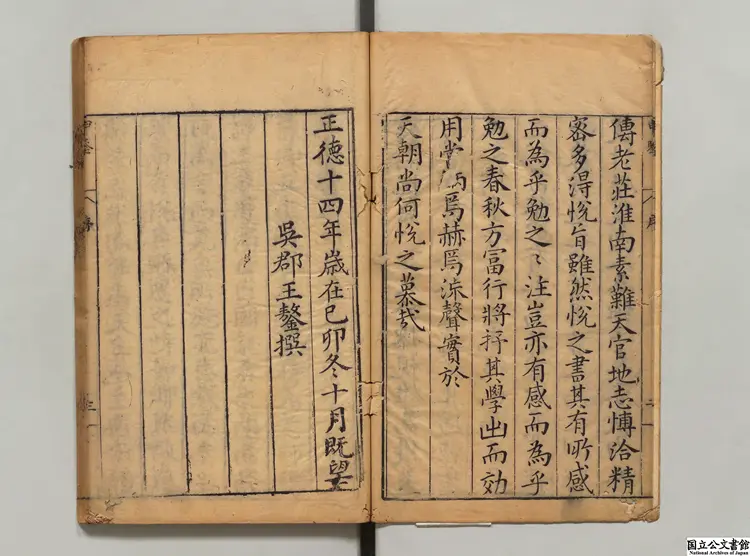 傳老莊淮南素難天官地志博洽精
密多得悅旨雖然悅之書其有所感
而為乎勉之〻注豈亦有感而為乎
勉之春秋方富行將抒其學出而效
用當 焉赫焉流聲實於
天朝尚何悅之慕哉
正德十四年歲在己卯冬十月既望
吳郡王鏊撰
申鑒
序
二
申鑒
序
三
国立公文書館
National Archives of Japan